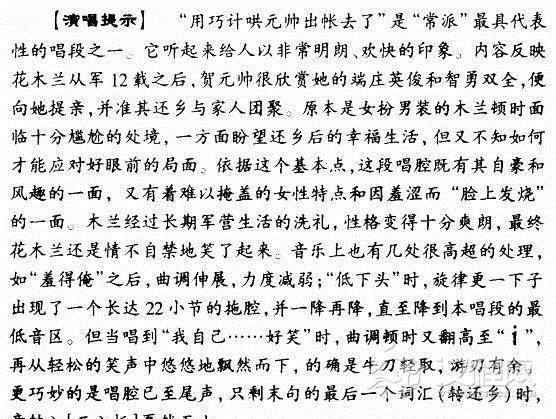 【演唱提示】 “用巧计哄元帅出帐去了”是“常派”最具代表
性的唱段之一。它听起来给人以非常明朗、欢快的印象。内容反映
花木兰从军 12 载之后,贺元帅很欣赏她的端庄英俊和智勇双全,便
向她提亲,并准其还乡与家人团聚。原本是女扮男装的木兰顿时面
临十分尴尬的处境,一方面盼望还乡后的幸福生活,但又不知如何
才能应对好眼前的局面。依据这个基本点,这段唱腔既有其自豪和
风趣的一面,又有着难以掩盖的女性特点和因羞涩而“脸上发烧”
的一面。木兰经过长期军营生活的洗礼,性格变得十分爽朗,最终
花木兰还是情不自禁地笑了起来。音乐上也有几处很高超的处理,
如“羞得俺”之后,曲调伸展,力度减弱;“低下头”时,旋律更一下子
出现了一个长达 22 小节的拖腔,并一降再降,直至降到本唱段的最
低音区。但当唱到“我自己……好笑”时,曲调顿时又翻高至“i”,
再从轻松的笑声中悠悠地飘然而下,的确是牛刀轻取,游刃有余。
更巧妙的是唱腔已至尾声,只剩末句的最后一个词汇(转还乡)时,